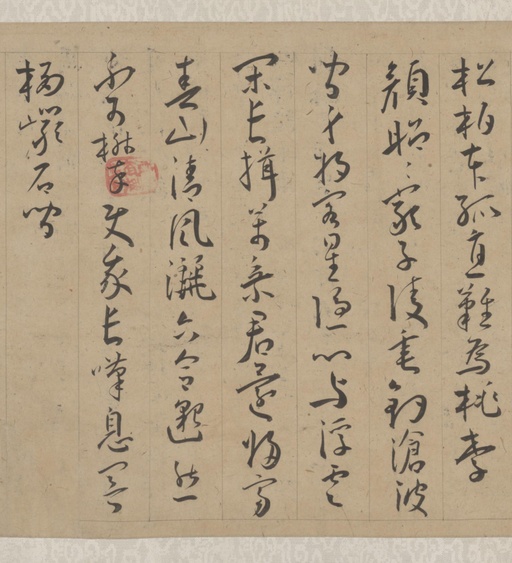 松柏本孤直難為桃李
顔昭〻嚴子陵垂釣滄波
間身將客星隱心与浮雲
閑長揖萬乘君還歸富
春山清風灑六合邈然
不可攀使我長嘆息冥
棲巖石間